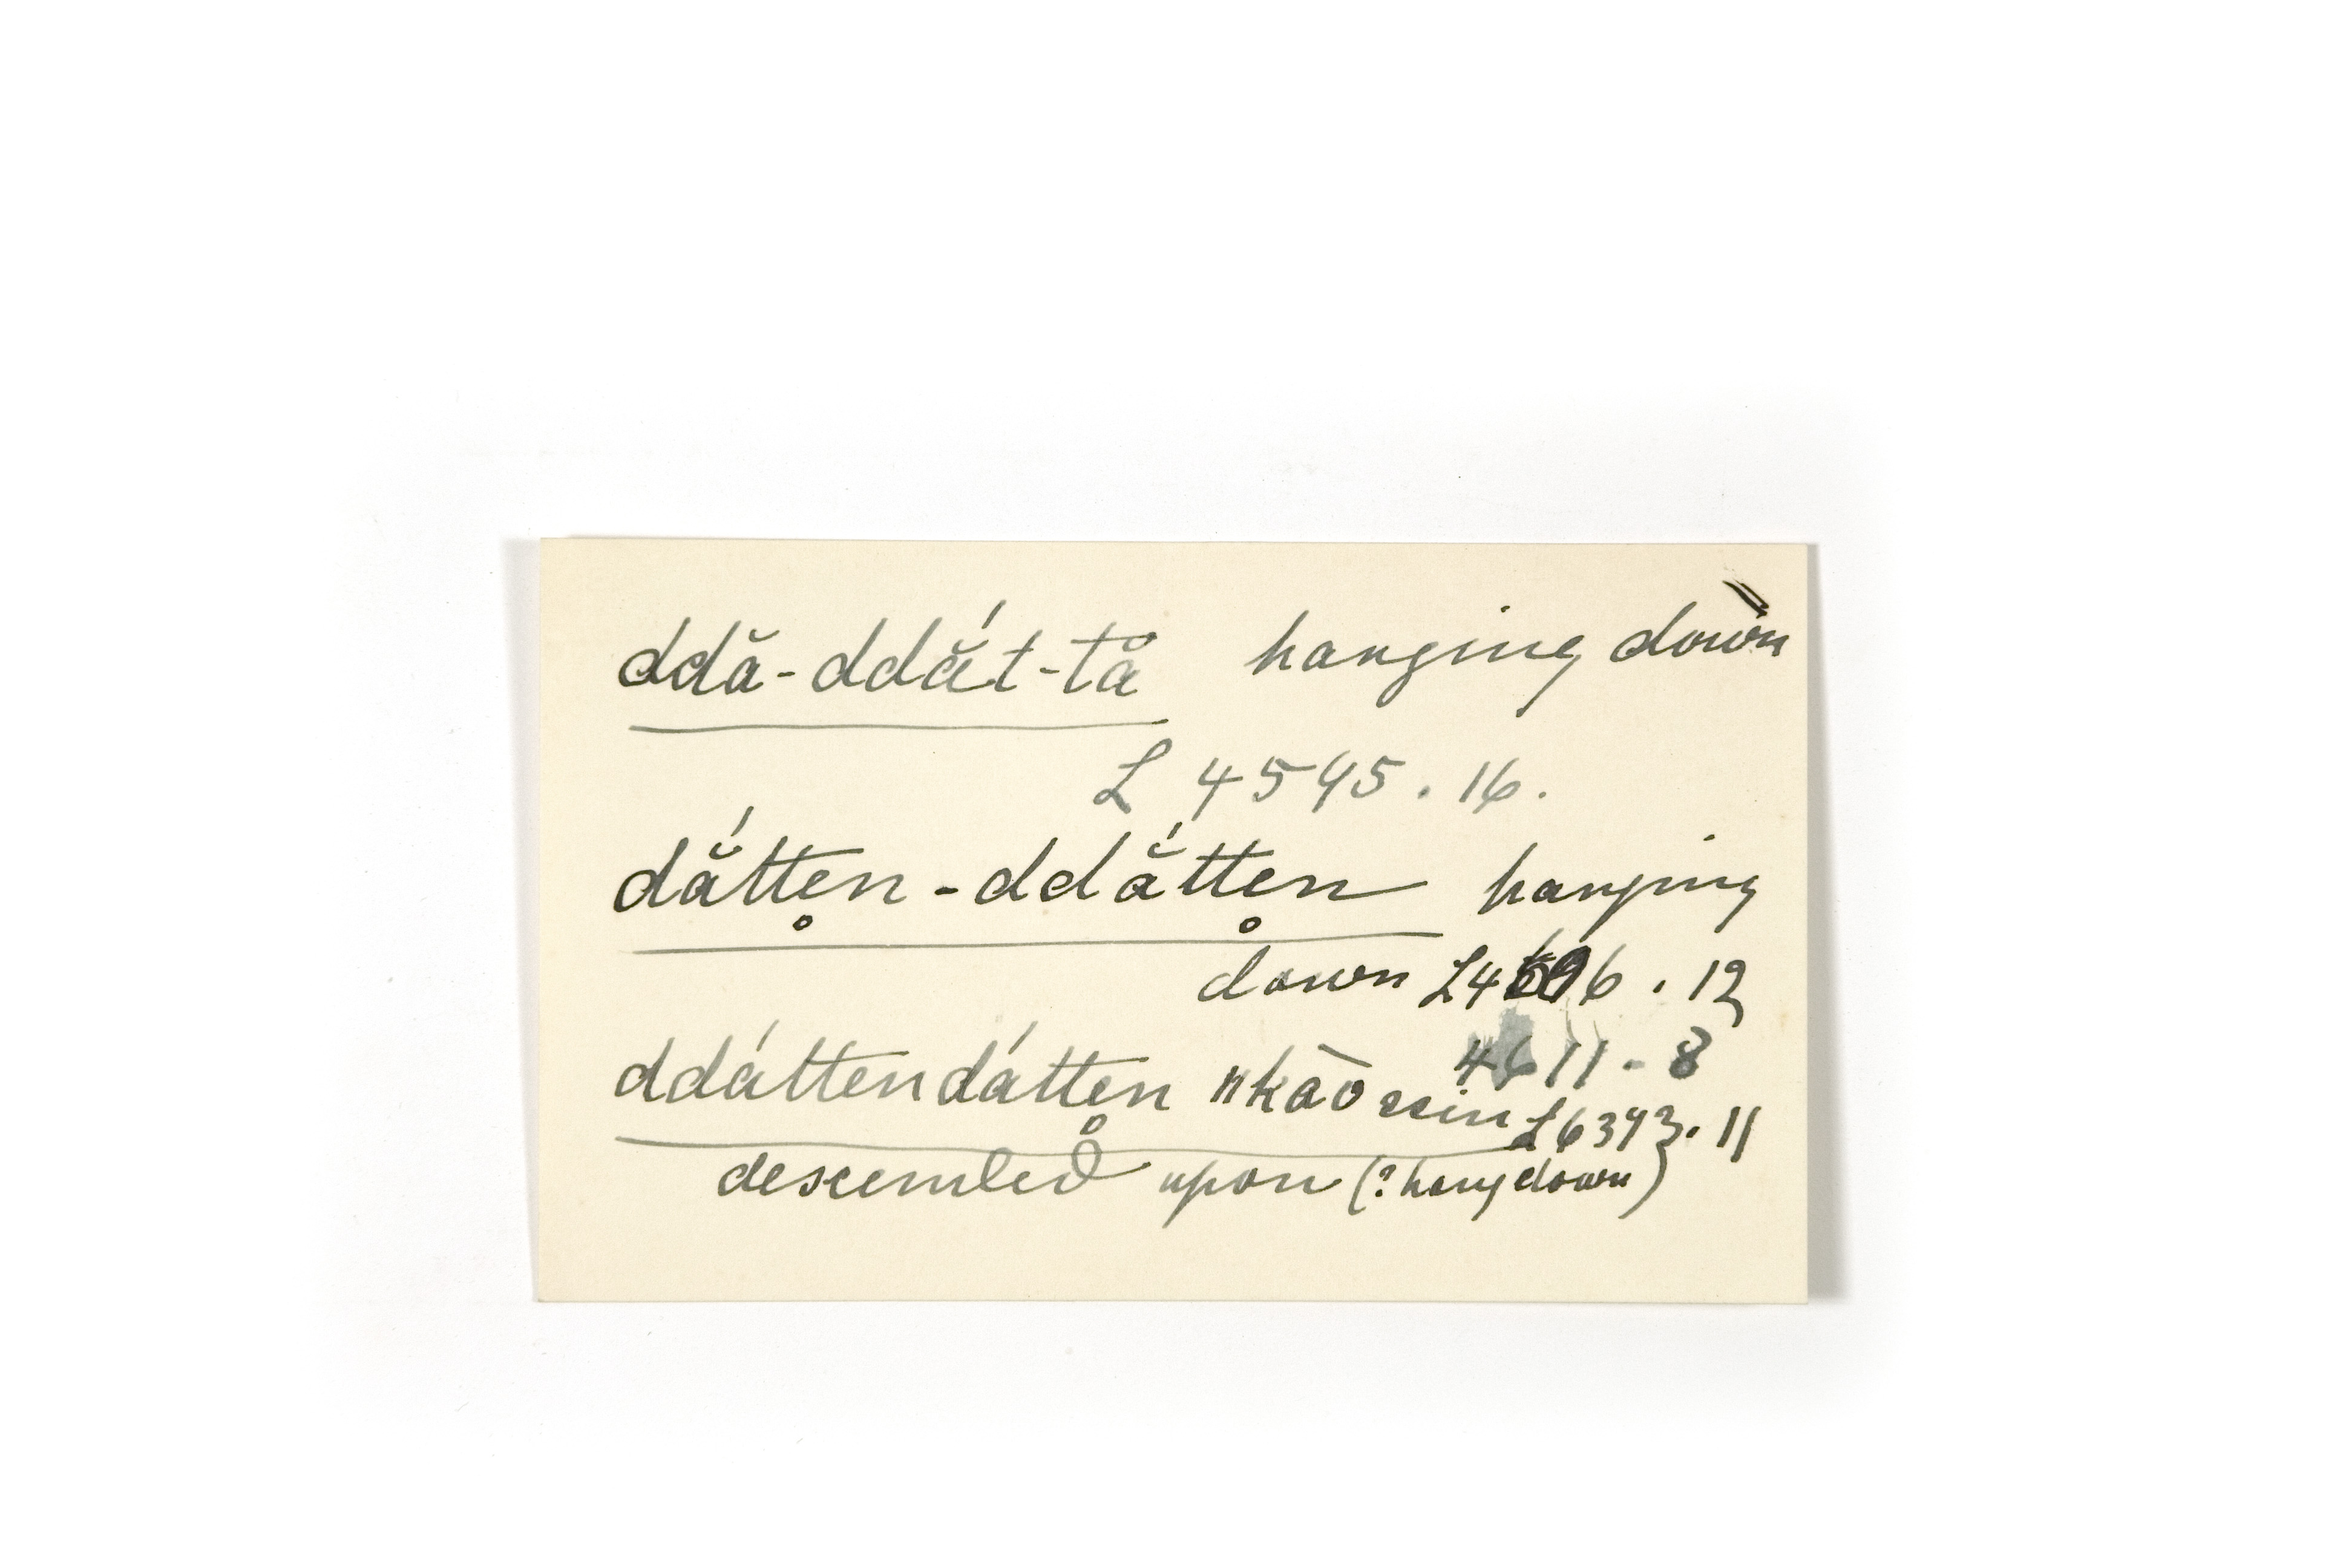 ddă-ddắt-tå hanging down
L 4595. 16.
dắtte̥n - ddắtte̥n hanging
down L4596 . 12
4611 - 8
ddáttendátte̥n L6393. 11
descended upon (? hang down)